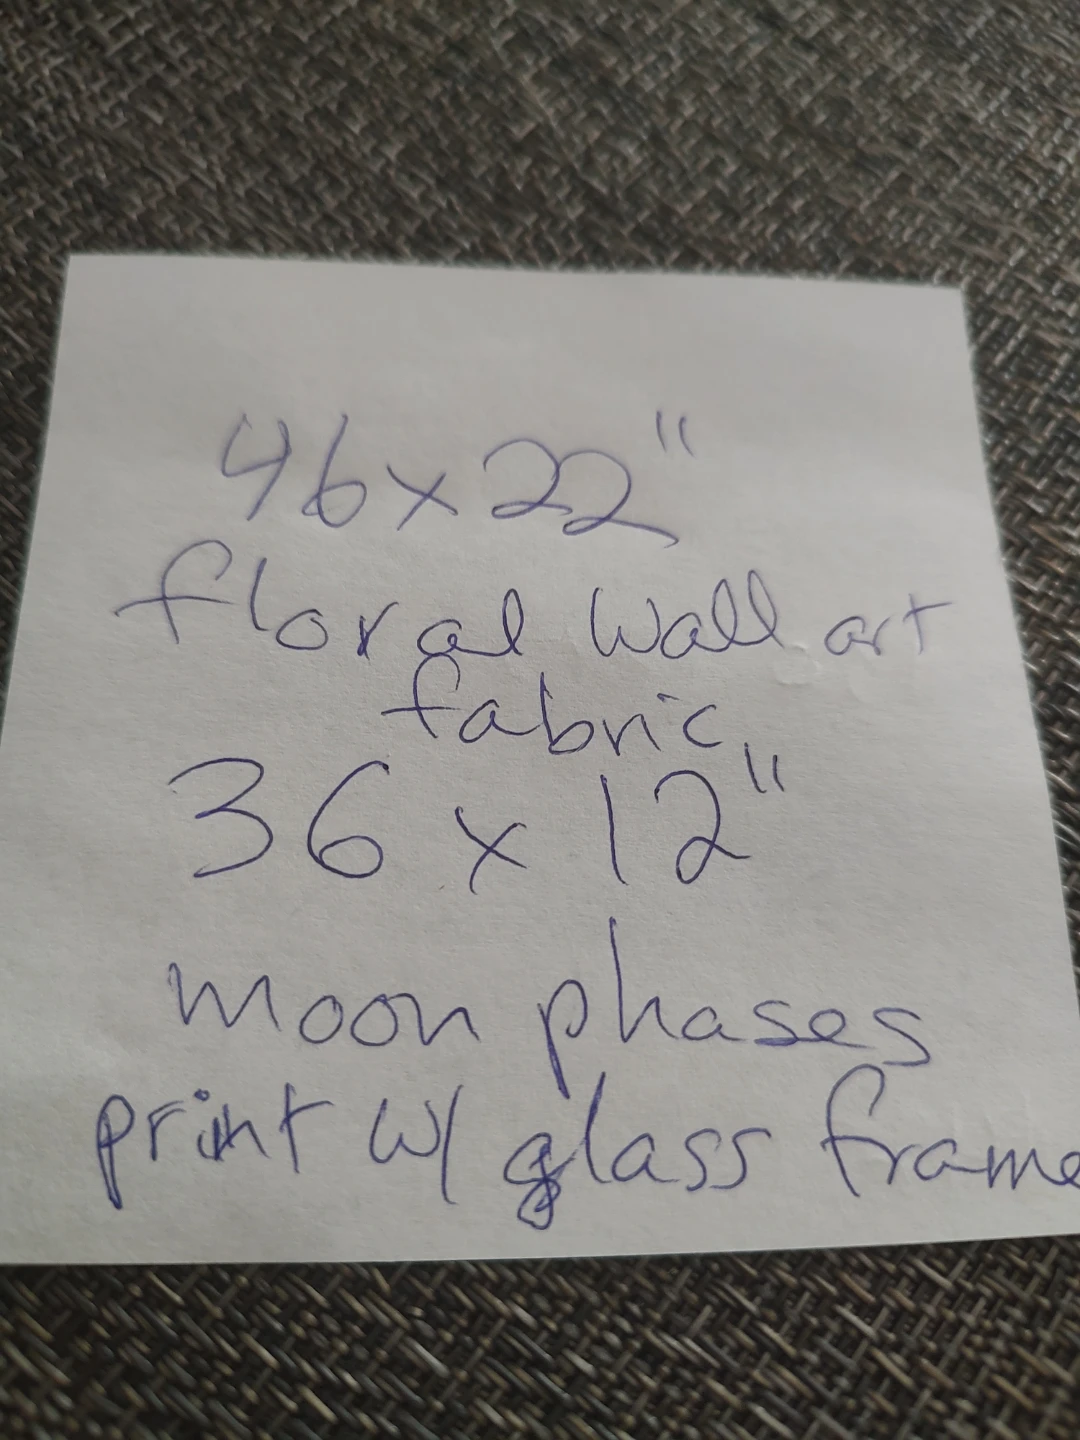 46 x 22"
floral wall art
fabric
36 x 12"
moon phases
print w/ glass frame